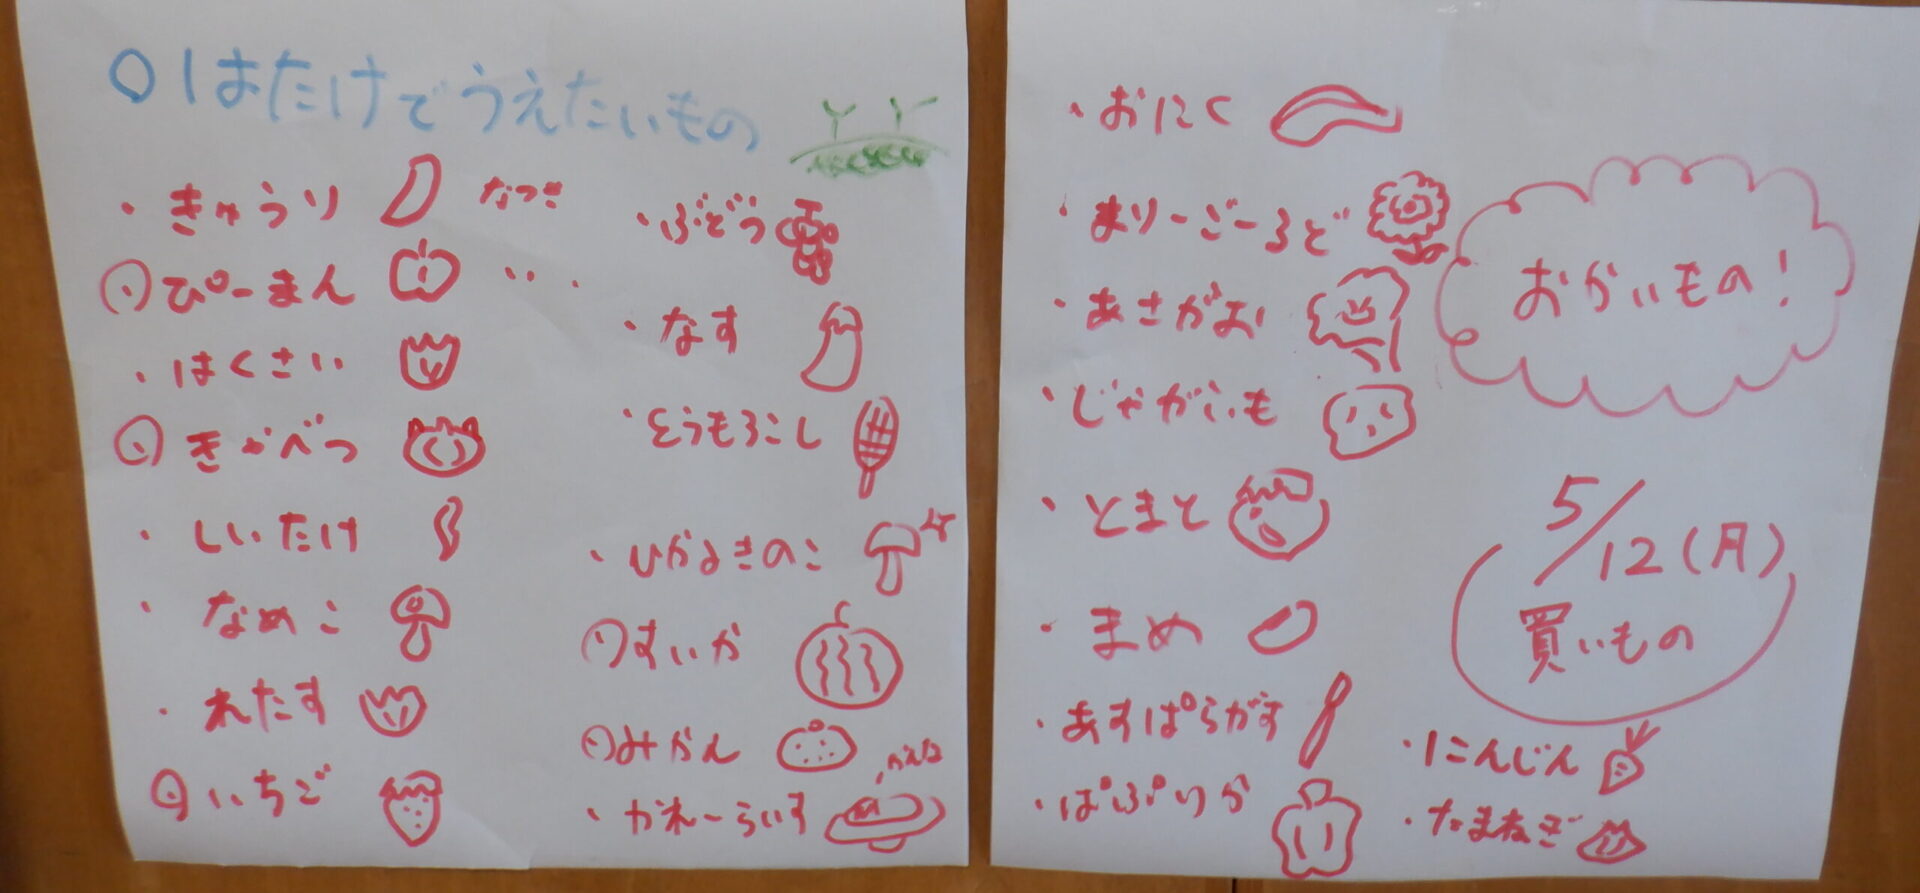 ○はたけでうえたいもの
・きゅうり なつき
・ぴーまん
・はくさい
・きゃべつ
・しいたけ
・なめこ
・れたす
・いちご
・ぶどう
・なす
・とうもろこし
・ひかるきのこ
・すいか
・みかん
・かれーらいす
・おにく
・まりーごーるど
・あさがお
・じゃがいも
・とまと
・まめ
・あすぱらがす
・ぱぷりか
おかいもの!
5/12(月)
買いもの
・にんじん
・たまねぎ